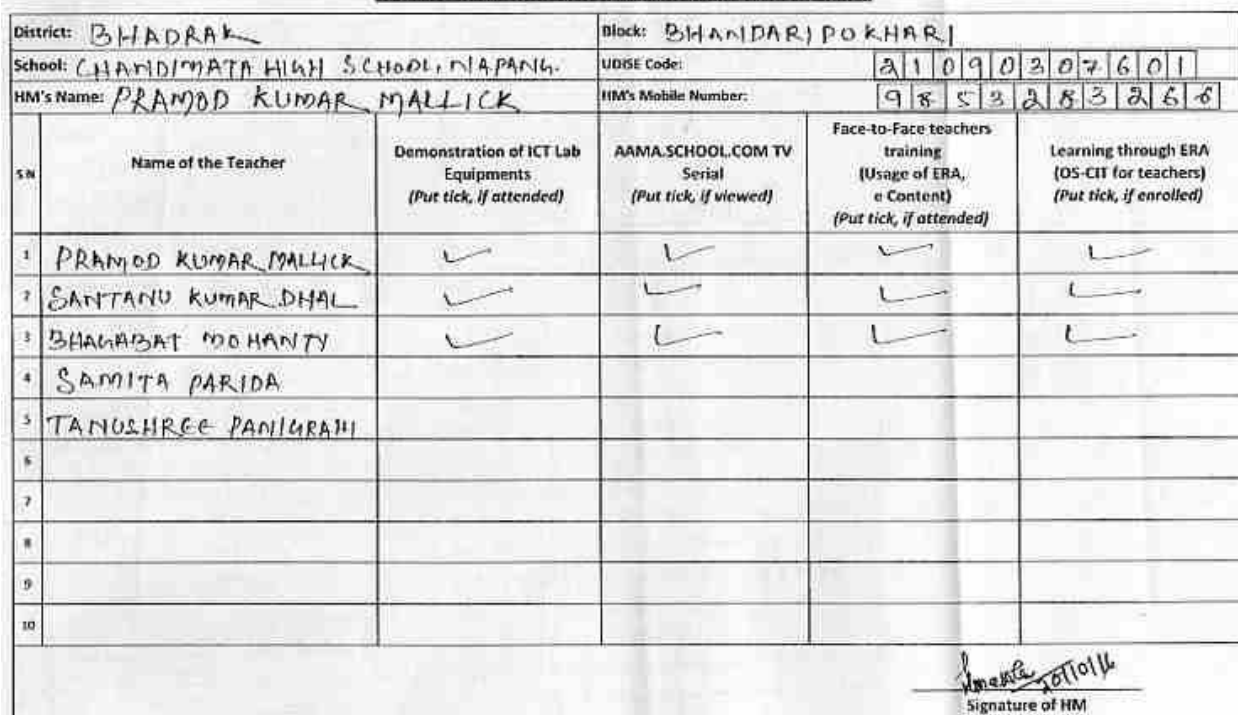 District: BHADRAK Block: BHANDARIPOKHARI
School: CHANDIMATA HIGH SCHOOL, NAPANG. UDISE Code: 21090307601
HM's Name: PRAMOD KUMAR MALLICK HM's Mobile Number: 9853283266
S N Name of the Teacher Demonstration of ICT Lab Equipments (Put tick, if attended) AAMA.SCHOOL.COM TV Serial (Put tick, if viewed) Face-to-Face teachers training (Usage of ERA, e Content) (Put tick, if attended) Learning through ERA (OS-CIT for teachers) (Put tick, if enrolled)
1 PRAMOD KUMAR MALLICK ✓ ✓ ✓ ✓
2 SANTANU KUMAR DHAL ✓ ✓ ✓ ✓
3 BHAGABAT MOHANTY ✓ ✓ ✓ ✓
4 SAMITA PARIDA
5 TANUSHREE PANIGRAHI
6
7
8
9
10
20/10/16
Signature of HM